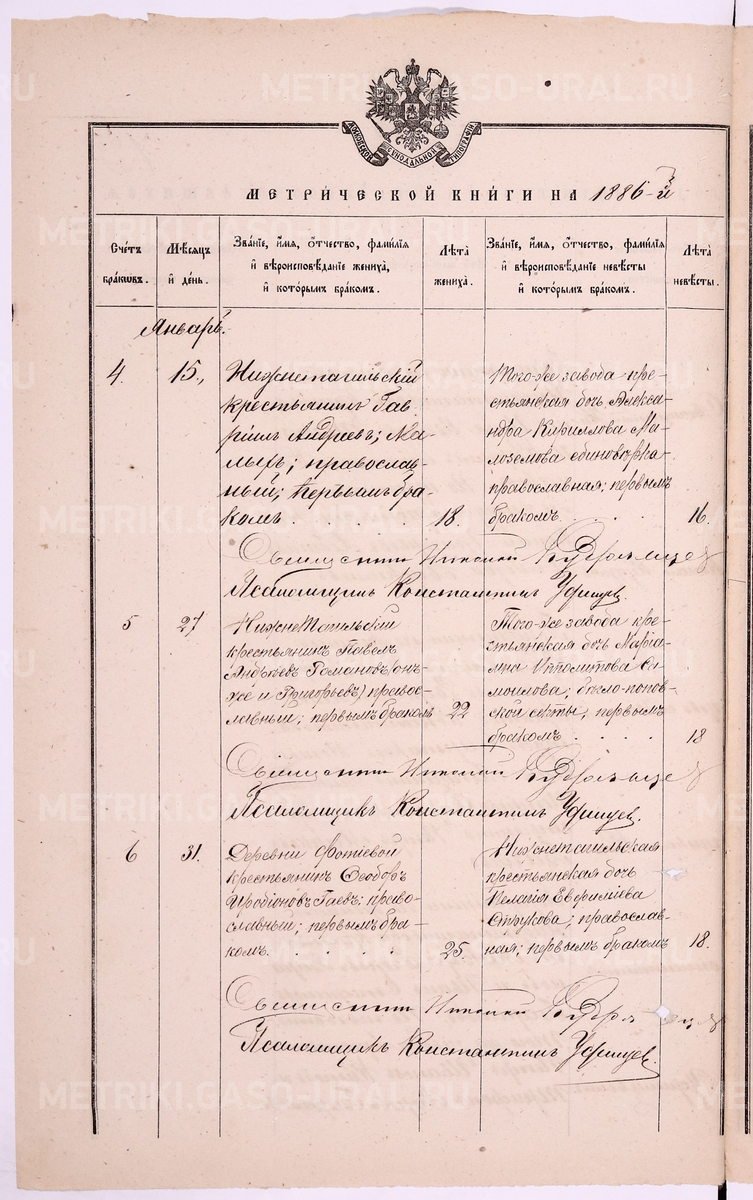 МОСКОВСКОЙ СѴНОДАЛЬНОЙ ТИПОГРАФІИ
МЕТРИЧЕСКОЙ КНИГИ НА 1886-й
Счетъ браковъ.
Мѣсяцъ и день.
Званіе, имя, отчество, фамилія и вѣроисповѣданіе жениха, и которымъ бракомъ.
Лѣта жениха.
Званіе, имя, отчество, фамилія и вѣроисповѣданіе невѣсты и которымъ бракомъ.
Лѣта невѣсты.
Январь.
4.
15.
Нижнетагильскій
крестьянинъ Гав-
ріилъ Андреевъ; Ма-
лыхъ; православ-
ный; первымъ бра-
комъ. . . . 18.
Того-же завода кре-
стьянская дочь Алекса-
ндра Кириллова Ма-
лоземова единовѣрка
православная; первымъ
бракомъ. . . 16.
Священникъ Николай
Псаломщикъ Константинъ Уфинцев.
5
27
Нижнетагильскій
крестьянинъ Павелъ
Андреевъ Романовъ (онъ-
же и Григорьевъ) право-
славный; первымъ бракомъ 22
Того-же завода кре-
стьянская дочь Маріа-
мна Ипполитова Са-
моилова; бѣгло-попов-
ской секты; первымъ
бракомъ. . . . . 18
Священникъ Николай
Псаломщикъ Константинъ Уфинцев.
6
31.
Деревни Фотіевой
крестьянинъ Ѳеодоръ
Иродіоновъ Гаевъ; право-
славный; первымъ бра-
комъ. . . . . . 25.
Нижнетагильская
крестьянская дочь
Пелагія Евфиміева
Струкова; православ-
ная; первымъ бракомъ 18.
Священникъ Николай
Псаломщикъ Константинъ Уфинцев.
METRIKI.GASO-URAL.RU